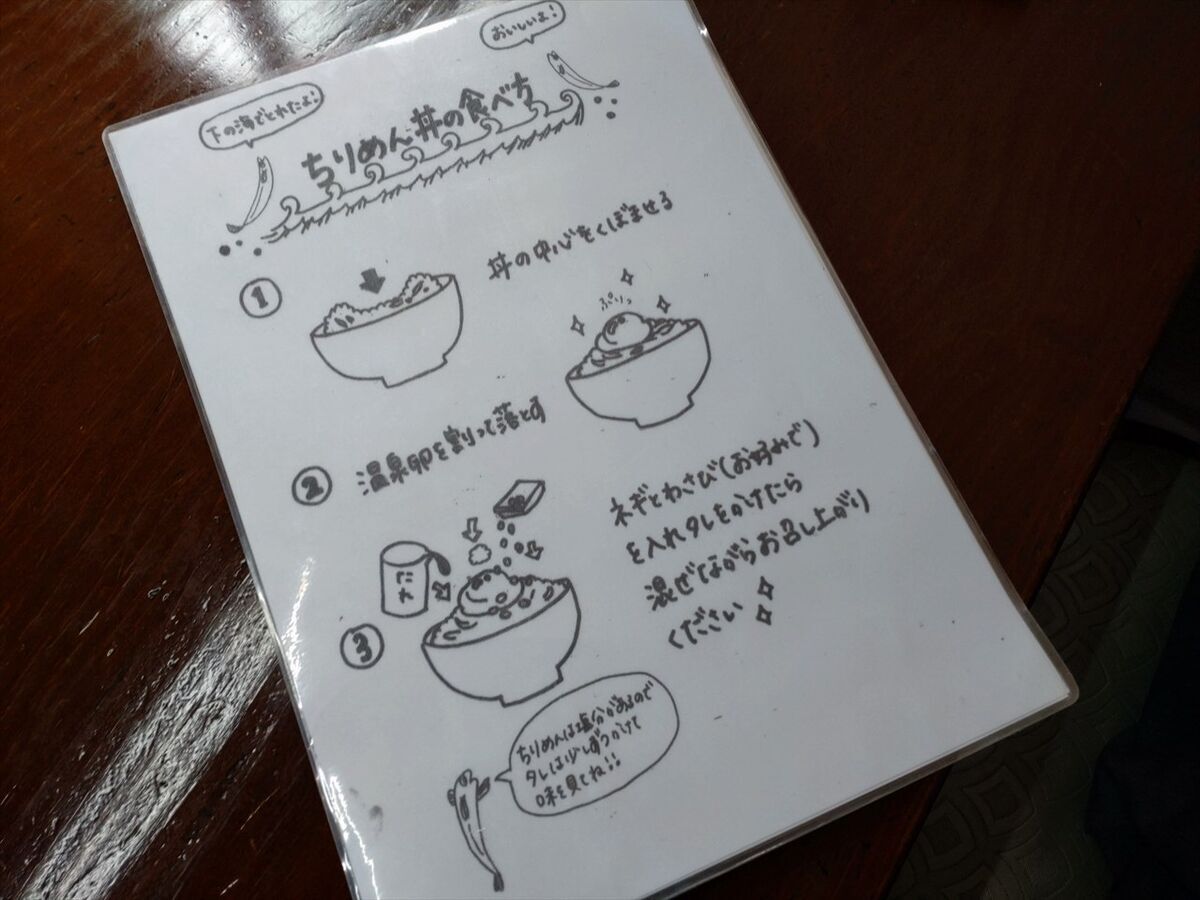 おいしいよ!
下の海でとれたよ!
ちりめん丼の食べ方
①
丼の中心をくぼませる
ぷりっ
②
温泉卵を割って落とす
③
たれ
ネギとわさび(お好みで)
を入れタレをかけたら
混ぜながらお召し上がり
ください
ちりめんは塩分があるので
タレは少しずつかけて
味を見てね!!